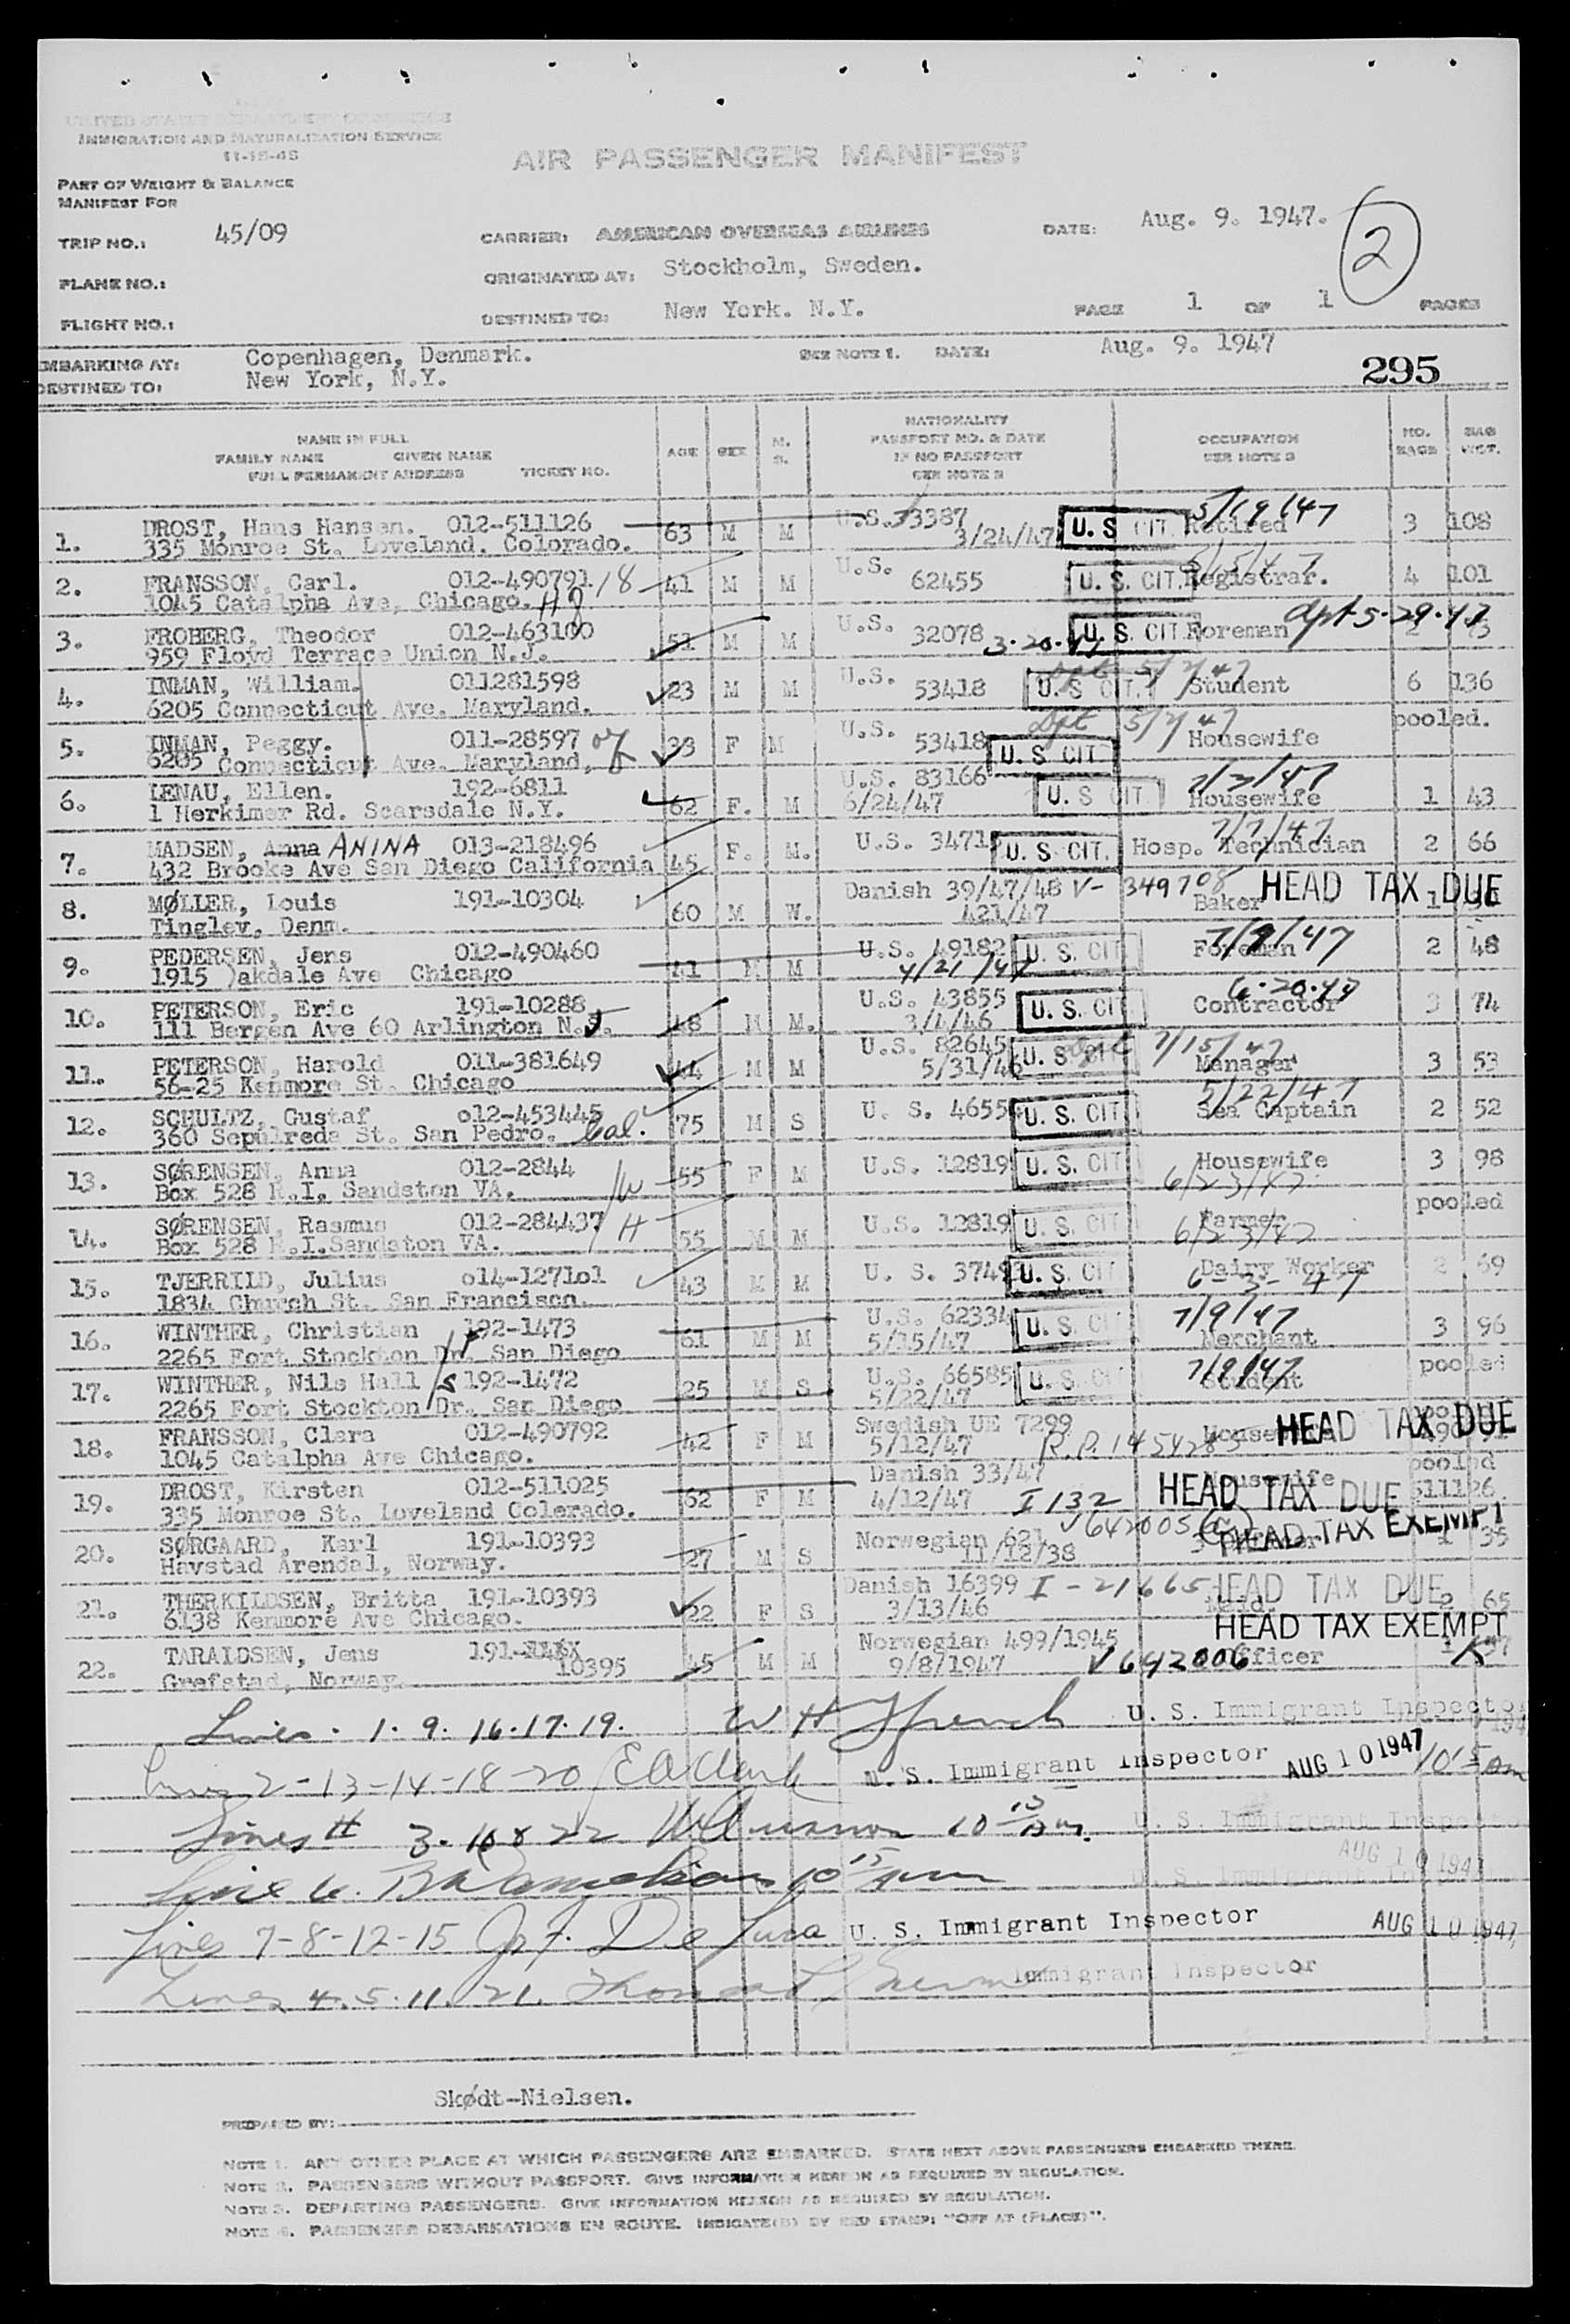 UNITED STATES DEPARTMENT OF JUSTICE
IMMIGRATION AND NATURALIZATION SERVICE
11-15-45
AIR PASSENGER MANIFEST
PART OF WEIGHT & BALANCE
MANIFEST FOR
TRIP NO.: 45/09 CARRIER: AMERICAN OVERSEAS AIRLINES DATE: Aug. 9. 1947. 2
PLANE NO.: ORIGINATED AT: Stockholm, Sweden.
FLIGHT NO.: DESTINED TO: New York. N.Y. PAGE 1 OF 1 PAGES
EMBARKING AT: Copenhagen, Denmark. SEE NOTE 1. DATE: Aug. 9. 1947
DESTINED TO: New York, N.Y. 295
NAME IN FULL
FAMILY NAME GIVEN NAME
FULL PERMANENT ADDRESS TICKET NO.
AGE SEX M. S.
NATIONALITY
PASSPORT NO. & DATE
IF NO PASSPORT
SEE NOTE 2
OCCUPATION
SEE NOTE 3
NO. BAGS BAG WGT.
1. DROST, Hans Hansen. 012-511126 63 M M U.S. 73387 U.S CIT. Retired 5/19/47 3 108
335 Monroe St. Loveland. Colorado. 3/24/47
2. FRANSSON, Carl. 012-490791 /8 41 M M U.S. 62455 U.S. CIT. Registrar. 5/5/47 4 101
1045 Catalpha Ave, Chicago.
3. FROBERG, Theodor 012-463100 51 M M U.S. 32078 3-20-47 U.S. CIT. Foreman dpt 5-29-47
959 Floyd Terrace Union N.J.
4. INMAN, William. 011281598 23 M M U.S. 53418 U.S CIT. Dpt 5/2/47 Student 6 136
6205 Connecticut Ave. Maryland.
5. INMAN, Peggy. 011-28597 33 F M U.S. 53418 U.S CIT Dpt 5/2/47 Housewife pooled.
6205 Connecticut Ave. Maryland,
6. LENAU, Ellen. 192-6811 62 F. M U.S. 83166 U.S CIT. 7/2/47 Housewife 1 43
1 Herkimer Rd. Scarsdale N.Y. 6/24/47
7. MADSEN, Anna ANINA 013-218496 45 F. M. U.S. 34715 U.S CIT. Hosp. Technician 7/7/47 2 66
432 Brooke Ave San Diego California
8. MØLLER, Louis 191-10304 60 M W. Danish 39/47/48 V- 349708 Baker HEAD TAX DUE 1
Tinglev, Denm. 421/47
9. PEDERSEN, Jens 012-490460 41 M M U.S. 49182 U.S. CIT Foreman 7/9/47 2 48
1915 )akdale Ave Chicago 4/21/47
10. PETERSON, Eric 191-10288 48 M M. U.S. 43855 U.S. CIT 6-20-47 Contractor 3 74
111 Bergen Ave 60 Arlington N.J. 3/4/46
11. PETERSON, Harold 011-381649 44 M M U.S. 82645 U.S CIT 7/15/47 Manager 3 53
56-25 Kenmore St. Chicago 5/31/46
12. SCHULTZ, Gustaf o12-453445 75 M S U. S. 4655 U.S. CIT 5/22/47 Sea Captain 2 52
360 Sepulreda St. San Pedro. Cal.
13. SØRENSEN, Anna 012-2844 /W 55 F M U.S. 12819 U.S. CIT Housewife 6/23/47 3 98
Box 528 R.I. Sandston VA.
14. SØRENSEN, Rasmus 012-284437 H 55 M M U.S. 12819 U.S. CIT Farmer 6/23/47 pooled
Box 528 R.I.Sandston VA.
15. TJERRILD, Julius o14-1271o1 43 M M U. S. 3749 U.S. CIT Dairy Worker 6-3-47 2 69
1834 Church St. San Francisco.
16. WINTHER, Christian 192-1473 61 M M U.S. 62334 U.S. CIT 7/9/47 Merchant 3 96
2265 Fort Stockton Dr. San Diego 5/15/47
17. WINTHER, Nils Hall S 192-1472 25 M S. U.S. 66585 U.S. CIT 7/9/47 Student pooled
2265 Fort Stockton Dr. San Diego 5/22/47
18. FRANSSON, Clara 012-490792 42 F M Swedish UE 7299 Housewife HEAD TAX DUE
1045 Catalpha Ave Chicago. 5/12/47 R.P. 1454283
19. DROST, Kirsten 012-511025 62 F M Danish 33/47 Housewife HEAD TAX DUE pooled
335 Monroe St. Loveland Colerado. 4/12/47 I 132 511126
20. SØRGAARD, Karl 191-10393 27 M S Norwegian 621 V642005 HEAD TAX EXEMPT 1 35
Havstad Arendal, Norway. 11/12/38
21. THERKILDSEN, Britta 191-10393 22 F S Danish 16399 I-21665 HEAD TAX DUE Maid 2 65
6138 Kenmore Ave Chicago. 3/13/46
22. TARALDSEN, Jens 191- 10395 45 M M Norwegian 499/1945 V642006 Officer HEAD TAX EXEMPT 1 37
Grefstad, Norway. 9/8/1947
Lines. 1. 9. 16. 17. 19. W H French U. S. Immigrant Inspector
Lines 2-13-14-18-20 E A Clark U. S. Immigrant Inspector AUG 10 1947 10 15 am
Lines # 3. 10 & 22 10 15 am. U. S. Immigrant Inspector
AUG 10 1947
Line 6. 10 15 am U. S. Immigrant
Lines 7-8-12-15 Jos. F. De Luca U. S. Immigrant Inspector AUG 10 1947
Lines 4. 5. 11. 21. Thomas Immigrant Inspector
Skødt-Nielsen.
PREPARED BY:
NOTE 1. ANY OTHER PLACE AT WHICH PASSENGERS ARE EMBARKED. STATE NEXT ABOVE PASSENGERS EMBARKED THERE.
NOTE 2. PASSENGERS WITHOUT PASSPORT. GIVE INFORMATION HEREON AS REQUIRED BY REGULATION.
NOTE 3. DEPARTING PASSENGERS. GIVE INFORMATION HEREON AS REQUIRED BY REGULATION.
NOTE 4. PASSENGER DEBARKATIONS EN ROUTE. INDICATE(D) BY RED STAMP: "OFF AT (PLACE)".